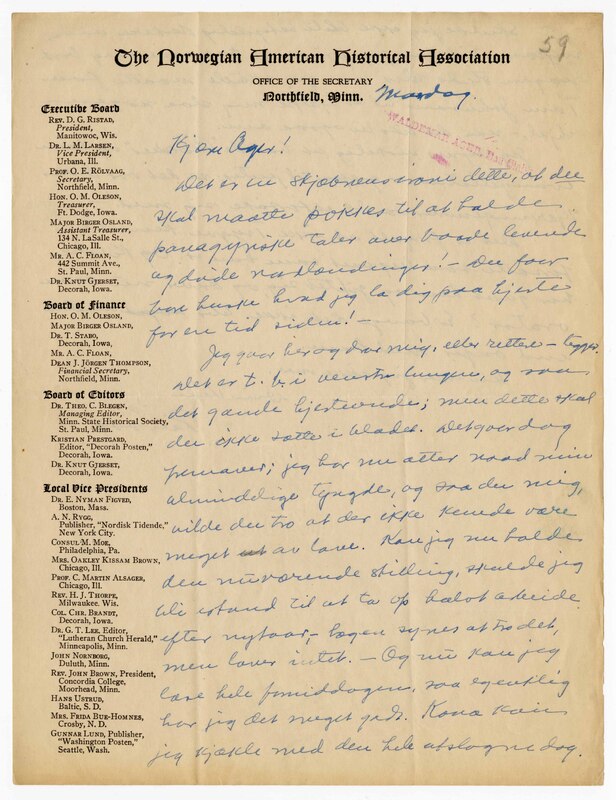 59
The Norwegian American Historical Association
OFFICE OF THE SECRETARY
Northfield, Minn.
Mandag.
WALDEMAR AGER, Eau Claire
Executive Board
REV. D. G. RISTAD,
President,
Manitowoc, Wis.
DR. L. M. LARSEN,
Vice President,
Urbana, Ill.
PROF. O. E. RÖLVAAG,
Secretary,
Northfield, Minn.
HON. O. M. OLESON,
Treasurer,
Ft. Dodge, Iowa.
MAJOR BIRGER OSLAND,
Assistant Treasurer,
134 N. LaSalle St.,
Chicago, Ill.
MR. A. C. FLOAN,
442 Summit Ave.,
St. Paul, Minn.
DR. KNUT GJERSET,
Decorah, Iowa.
Board of Finance
HON. O. M. OLESON,
MAJOR BIRGER OSLAND,
DR. T. STABO,
Decorah, Iowa.
MR. A. C. FLOAN,
DEAN J. JÖRGEN THOMPSON,
Financial Secretary,
Northfield, Minn.
Board of Editors
DR. THEO. C. BLEGEN,
Managing Editor,
Minn. State Historical Society,
St. Paul, Minn.
KRISTIAN PRESTGARD,
Editor, "Decorah Posten,"
Decorah, Iowa.
DR. KNUT GJERSET,
Decorah, Iowa.
Local Vice Presidents
DR. E. NYMAN FIGVED,
Boston, Mass.
A. N. RYGG,
Publisher, "Nordisk Tidende,"
New York City.
CONSUL M. MOE,
Philadelphia, Pa.
MRS. OAKLEY KISSAM BROWN,
Chicago, Ill.
PROF. C. MARTIN ALSAGER,
Chicago, Ill.
REV. H. J. THORPE,
Milwaukee. Wis.
COL. CHR. BRANDT,
Decorah, Iowa.
DR. G. T. LEE, Editor,
"Lutheran Church Herald,"
Minneapolis, Minn.
JOHN NORNBORG,
Duluth, Minn.
REV. JOHN BROWN, President,
Concordia College,
Moorhead, Minn.
HANS USTRUD,
Baltic, S. D.
MRS. FRIDA BUE-HOMNES,
Crosby, N. D.
GUNNAR LUND, Publisher,
"Washington Posten,"
Seattle, Wash.
Kjære Ager!
Det er nu skjæbnens ironi dette, at du
skal maatte pokkes til at holde
panagyriske taler over baade levende
og döde nordlændinger! – Du faar
bare huske hvad jeg la dig paa hjerte
for en tid siden! –
Jeg gaar her og drar mig, eller rettere – ligger.
Det er t. b. i venstre lungen, og saa
det gamle hjerteonde; men dette skal
du ikke sætte i bladet. Det gaar dog
fremover; jeg har nu atter naad min
almindelige tyngde, og saa du mig,
vilde du tro at der ikke kunde være
meget av lave. Kan jeg nu holde
den nuværende stilling, skulde jeg
bli istand til at ta op halvt arbeide
efter nytaar, – lægen synes at tro det,
men lover intet. – Og nu kan jeg
læse hele formiddagen, saa egentlig
har jeg det meget godt. Kona kan
jeg kjækle med den hele utslagne dag.